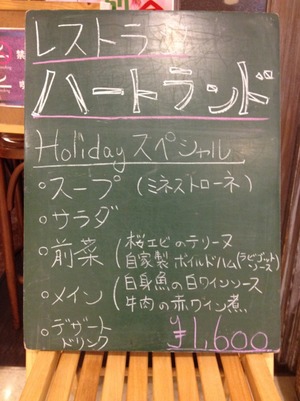 レストラン
ハートランド
Holiday スペシャル
・スープ (ミネストローネ)
・サラダ
・前菜 (桜エビのテリーヌ
自家製 ボイルドハム(ラビゴットソース)
・メイン (白身魚の白ワインソース
牛肉の赤ワイン煮
・デザート
ドリンク
¥1,600